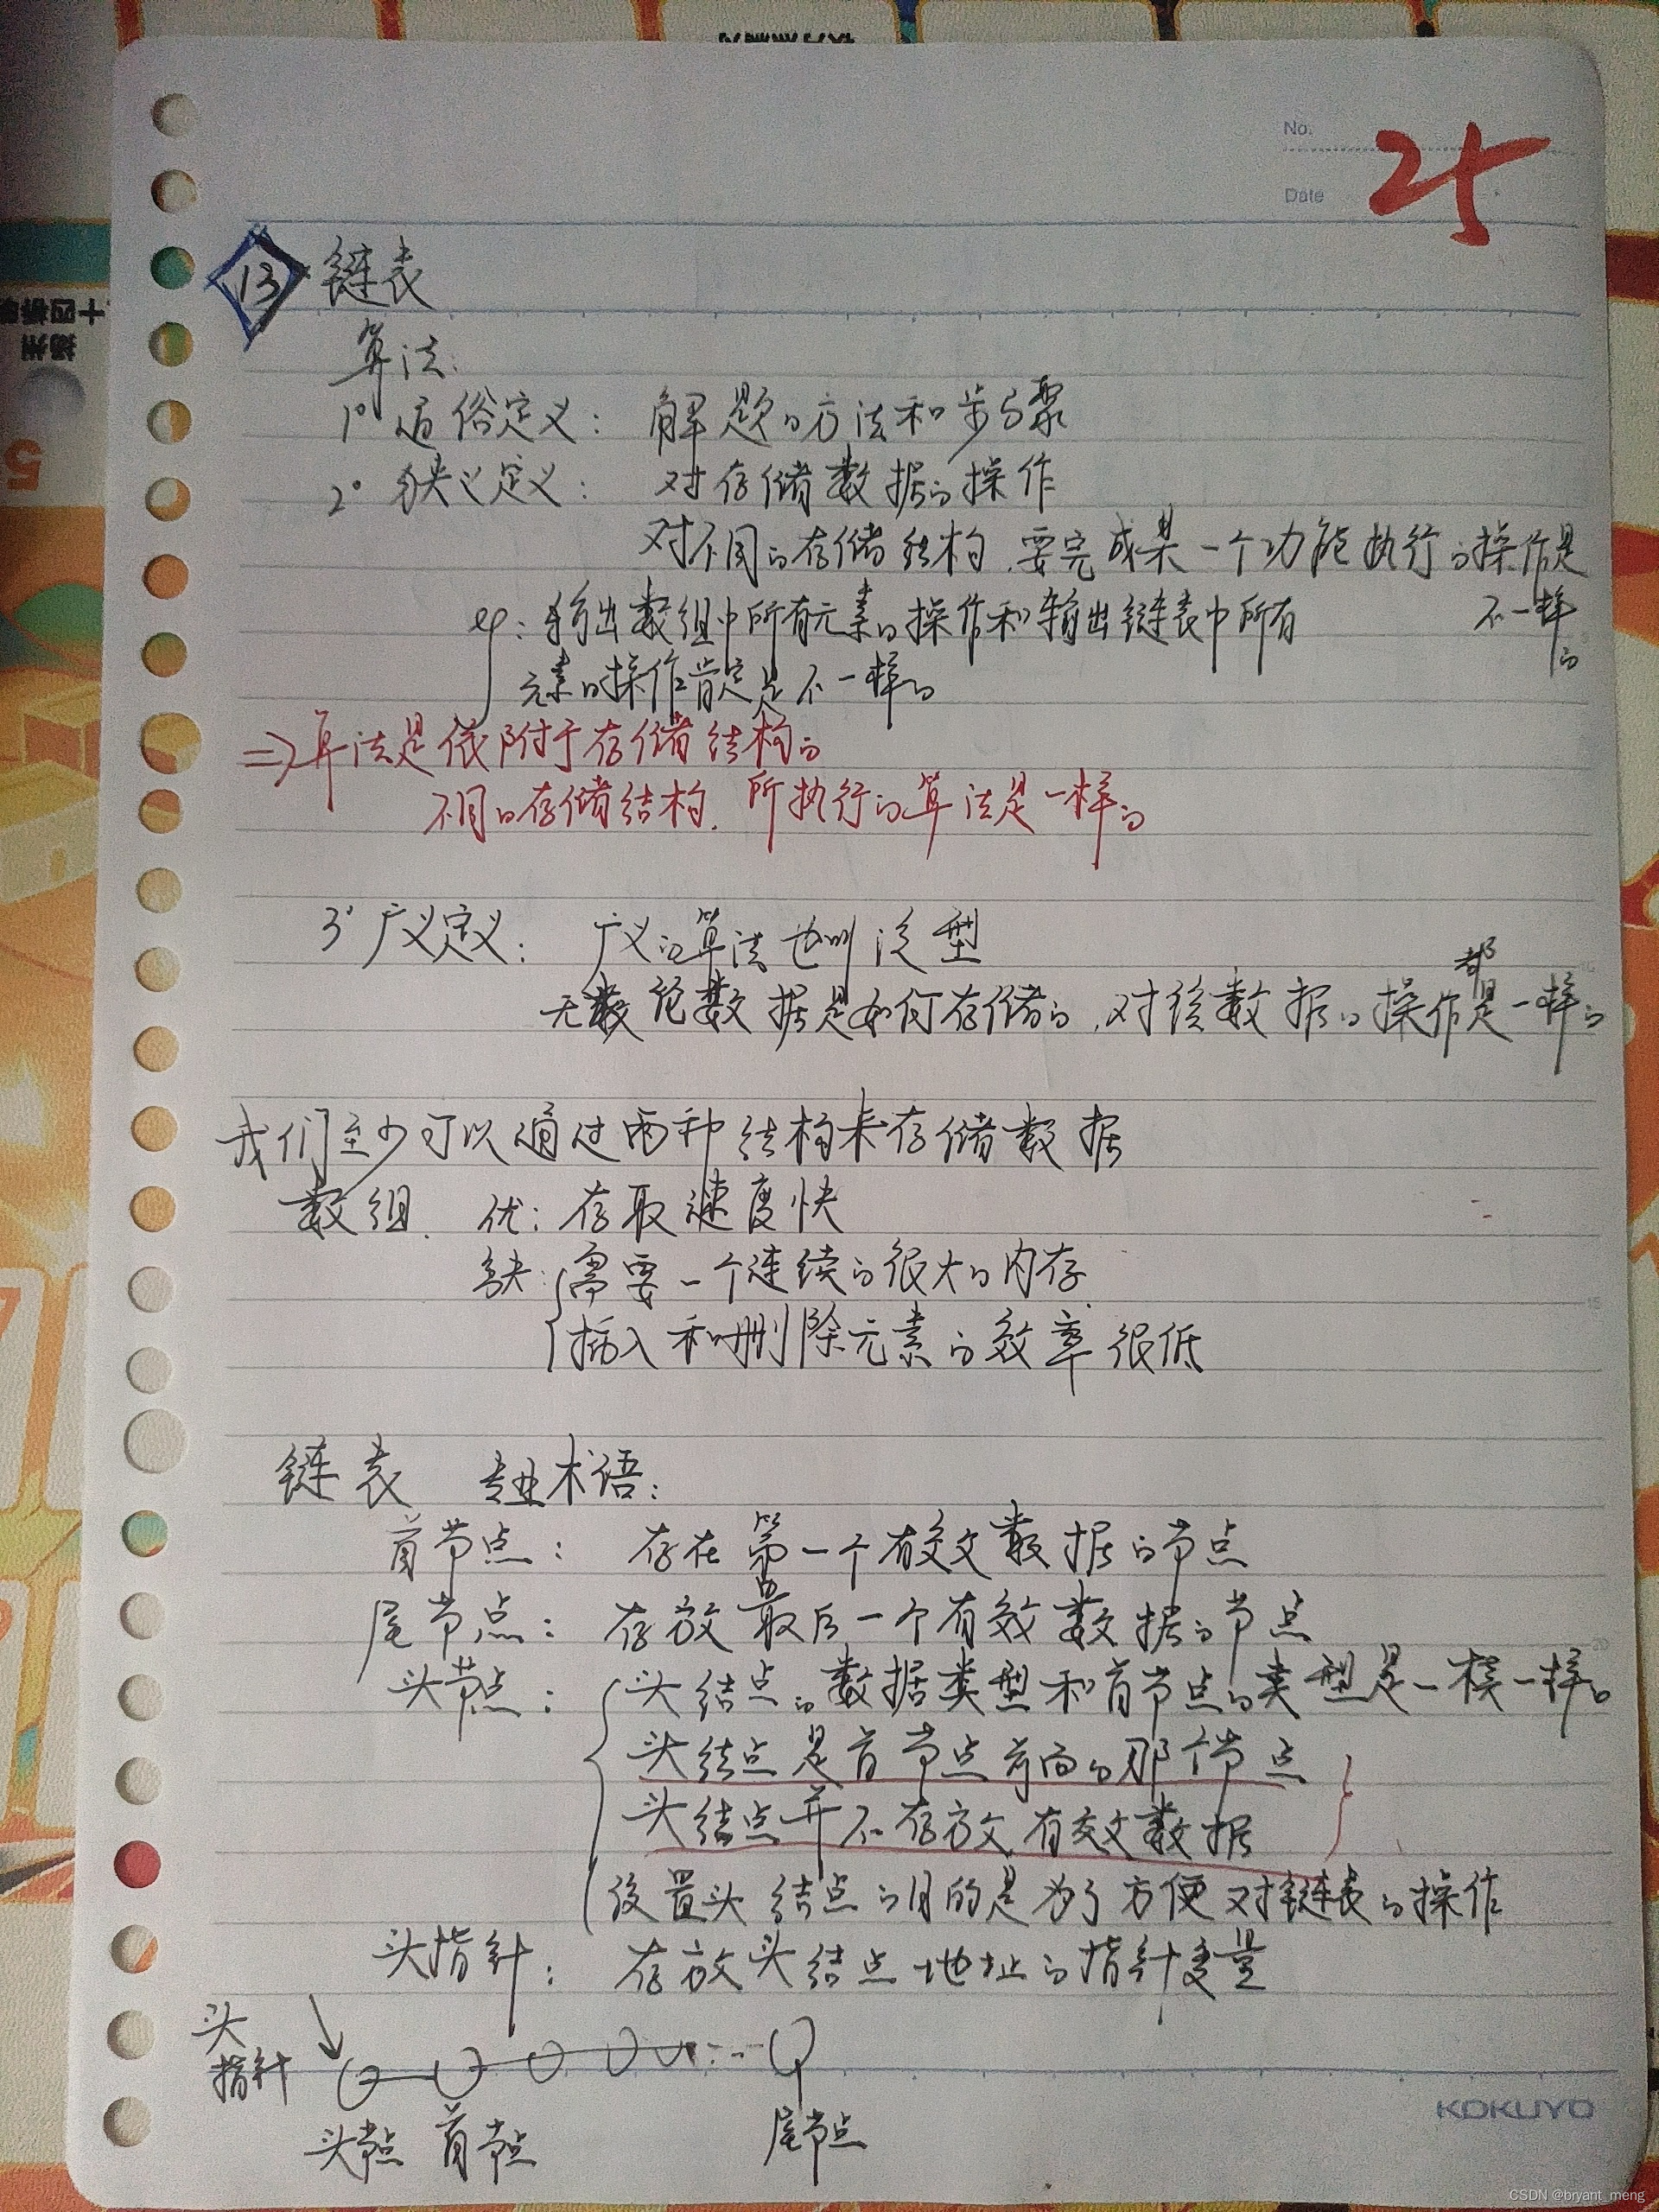 No.
Date
25
13 链表
算法:
1° 通俗定义: 解题的方法和步骤
2° 狭义定义: 对存储数据的操作
对不同的存储结构,要完成某一个功能执行的操作是
不一样的
eg: 输出数组中所有元素的操作和输出链表中所有
元素的操作肯定是不一样的
=> 算法是依附于存储结构的
不同的存储结构,所执行的算法是一样的
3° 广义定义: 广义的算法也叫泛型
无论数据是如何存储的,对该数据的操作都是一样的
我们至少可以通过两种结构来存储数据
数组. 优: 存取速度快
缺: 需要一个连续的很大的内存
插入和删除元素的效率很低
链表 专业术语:
首节点: 存在第一个有效数据的节点
尾节点: 存放最后一个有效数据的节点
头节点: 头结点的数据类型和首节点的类型是一模一样的
头结点是首节点前面的那个节点
头结点并不存放有效数据
设置头结点的目的是为了方便对链表的操作
头指针: 存放头结点地址的指针变量
头
指针
头节点 首节点 尾节点
KOKUYO
CSDN @bryant_meng